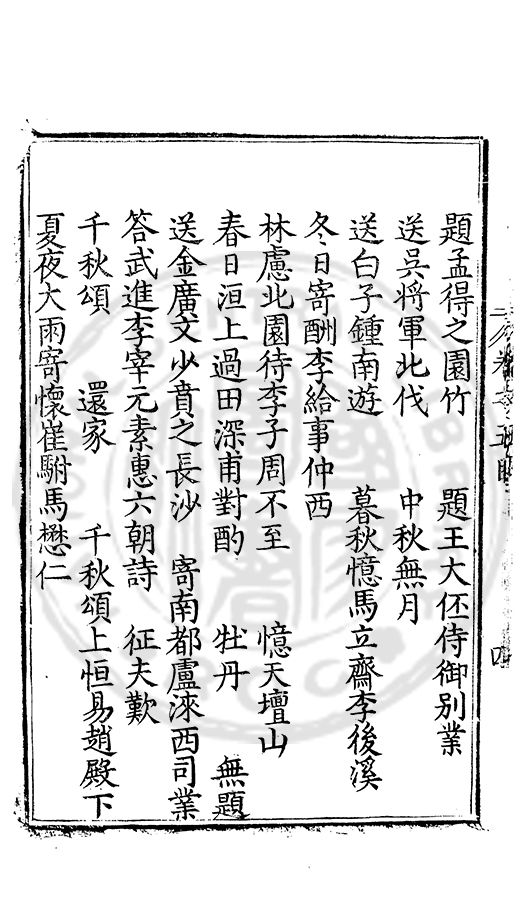 題孟得之園竹　題王大伾侍御別業
送吳將軍北伐　中秋無月
送白子鍾南遊　暮秋憶馬立齋李後溪
冬日寄酬李給事仲西
林慮北園待李子周不至　憶天壇山
春日洹上過田深甫對酌　牡丹　無題
送金廣文少賁之長沙　寄南都盧淶西司業
答武進李宰元素惠六朝詩　征夫歎
千秋頌　還家　千秋頌上恒易趙殿下
夏夜大雨寄懷崔駙馬懋仁
四